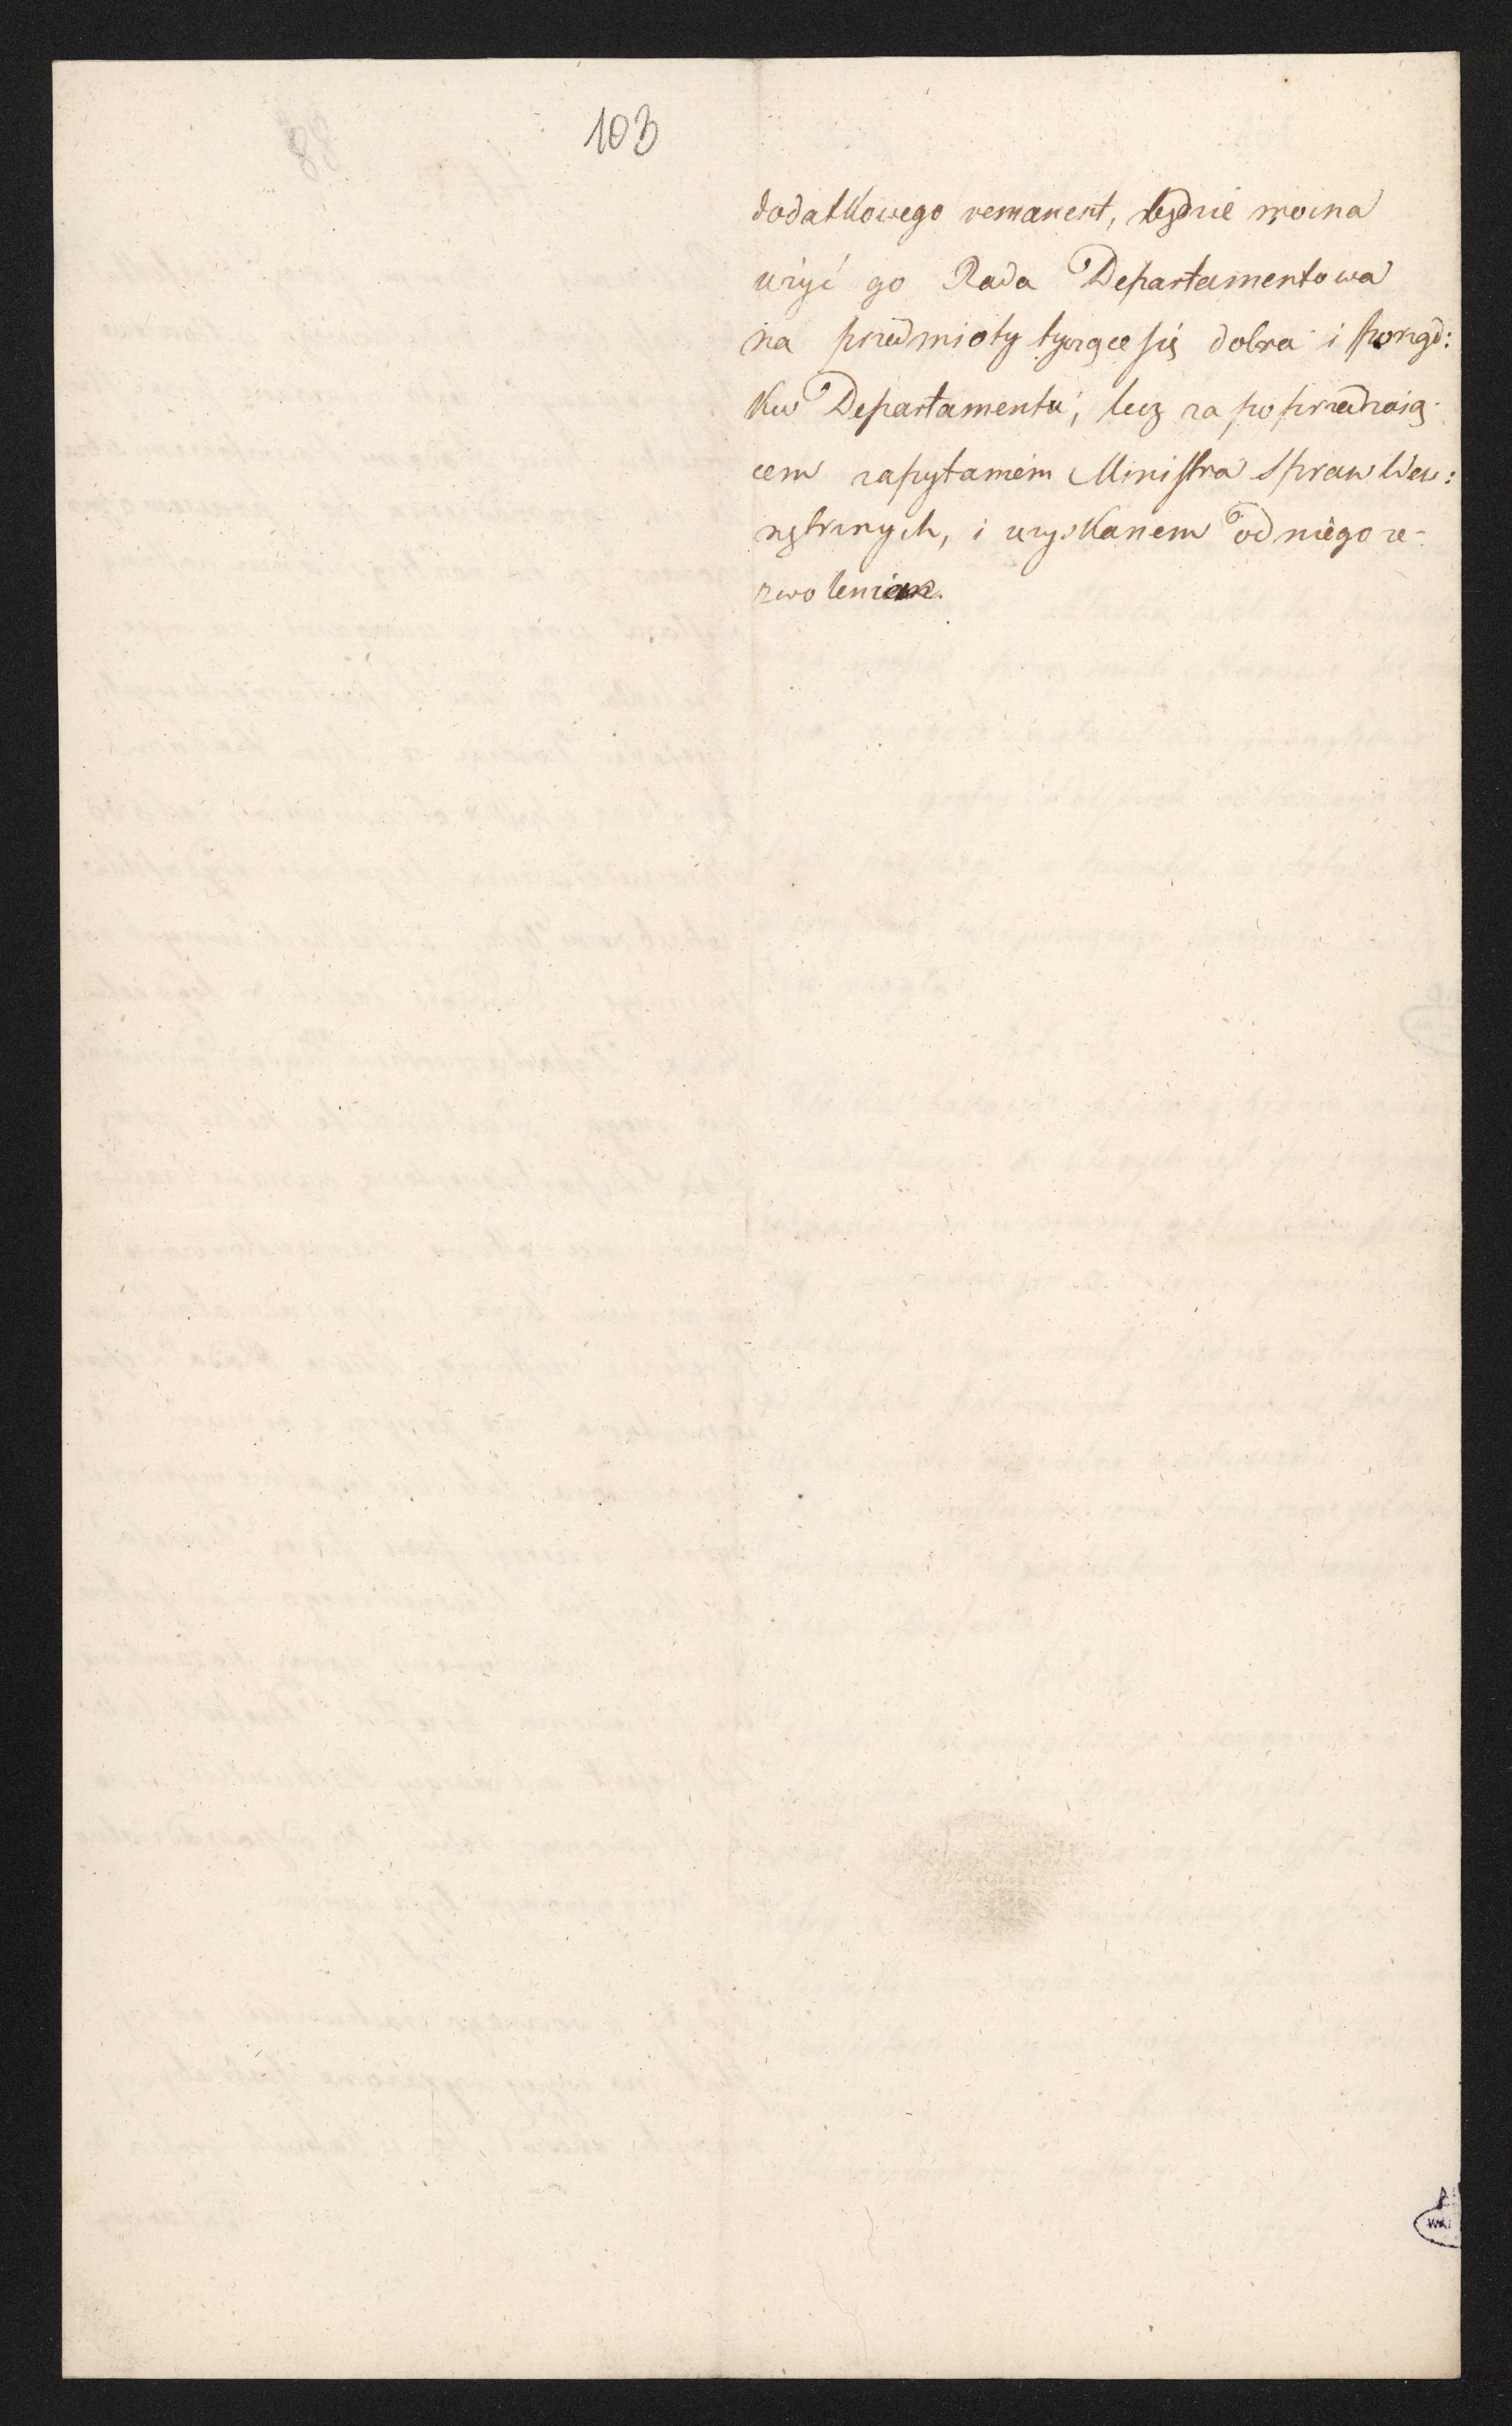 103
dodatkowego remanent, będzie mozna
uzyć go Rada Departamentowa
na przedmioty tyczące się dobra i porząd:
ku Departamentu, lecz za poprzedzaią-
cem zapytaniem Ministra Spraw Wew:
nętrznych, i uzyskanem od niego ze-
zwoleniem.